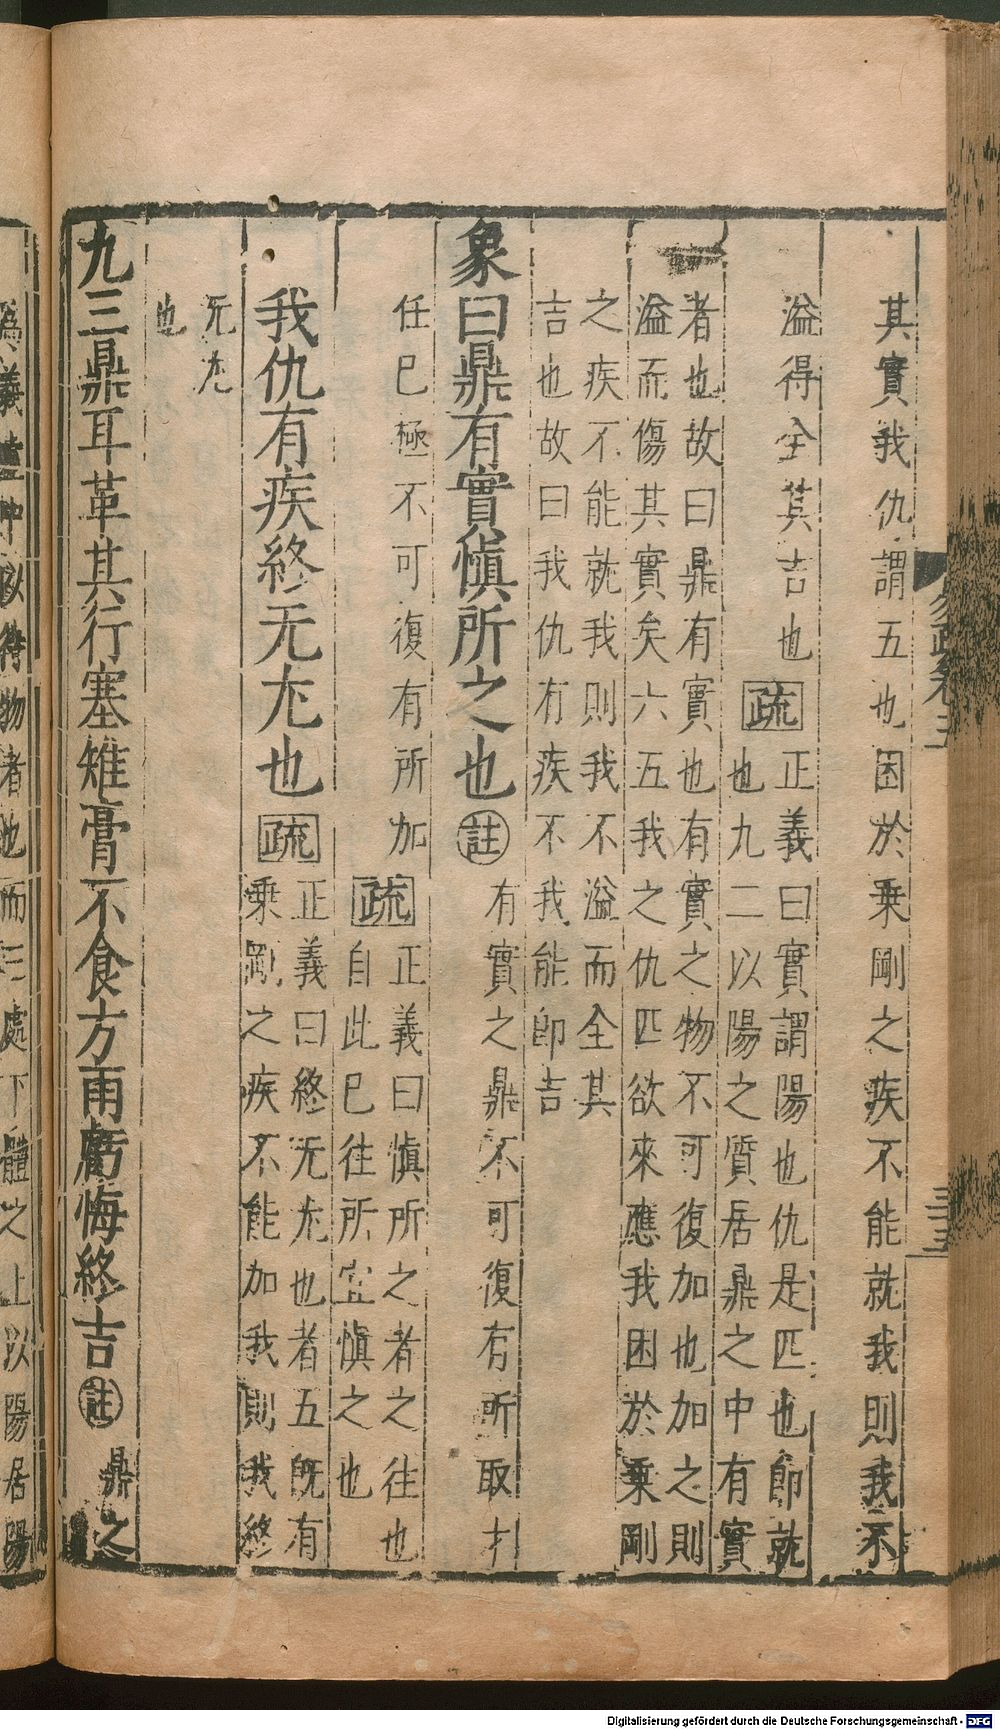 其實我仇謂五也困於乘剛之疾不能就我則我不
溢得全其吉也疏正義曰實謂陽也仇是匹也即就
也九二以陽之質居鼎之中有實
者也故曰鼎有實也有實之物不可復加也加之則
溢而傷其實矣六五我之仇匹欲來應我困於乘剛
之疾不能就我則我不溢而全其
吉也故曰我仇有疾不我能即吉
象曰鼎有實愼所之也註有實之鼎不可復有所取才
任已極不可復有所加
疏正義曰愼所之者之往也
自此已往所宜愼之也
我仇有疾終无尤也疏正義曰終无尤也者五既有
乘剛之疾不能加我則我終
无尤
也
九三鼎耳革其行塞雉膏不食方雨虧悔終吉註鼎之
易疏卷五
三十五
爲義 中以待物者也而三處下體之上以陽居陽
Digitalisierung gefördert durch die Deutsche Forschungsgemeinschaft - DFG